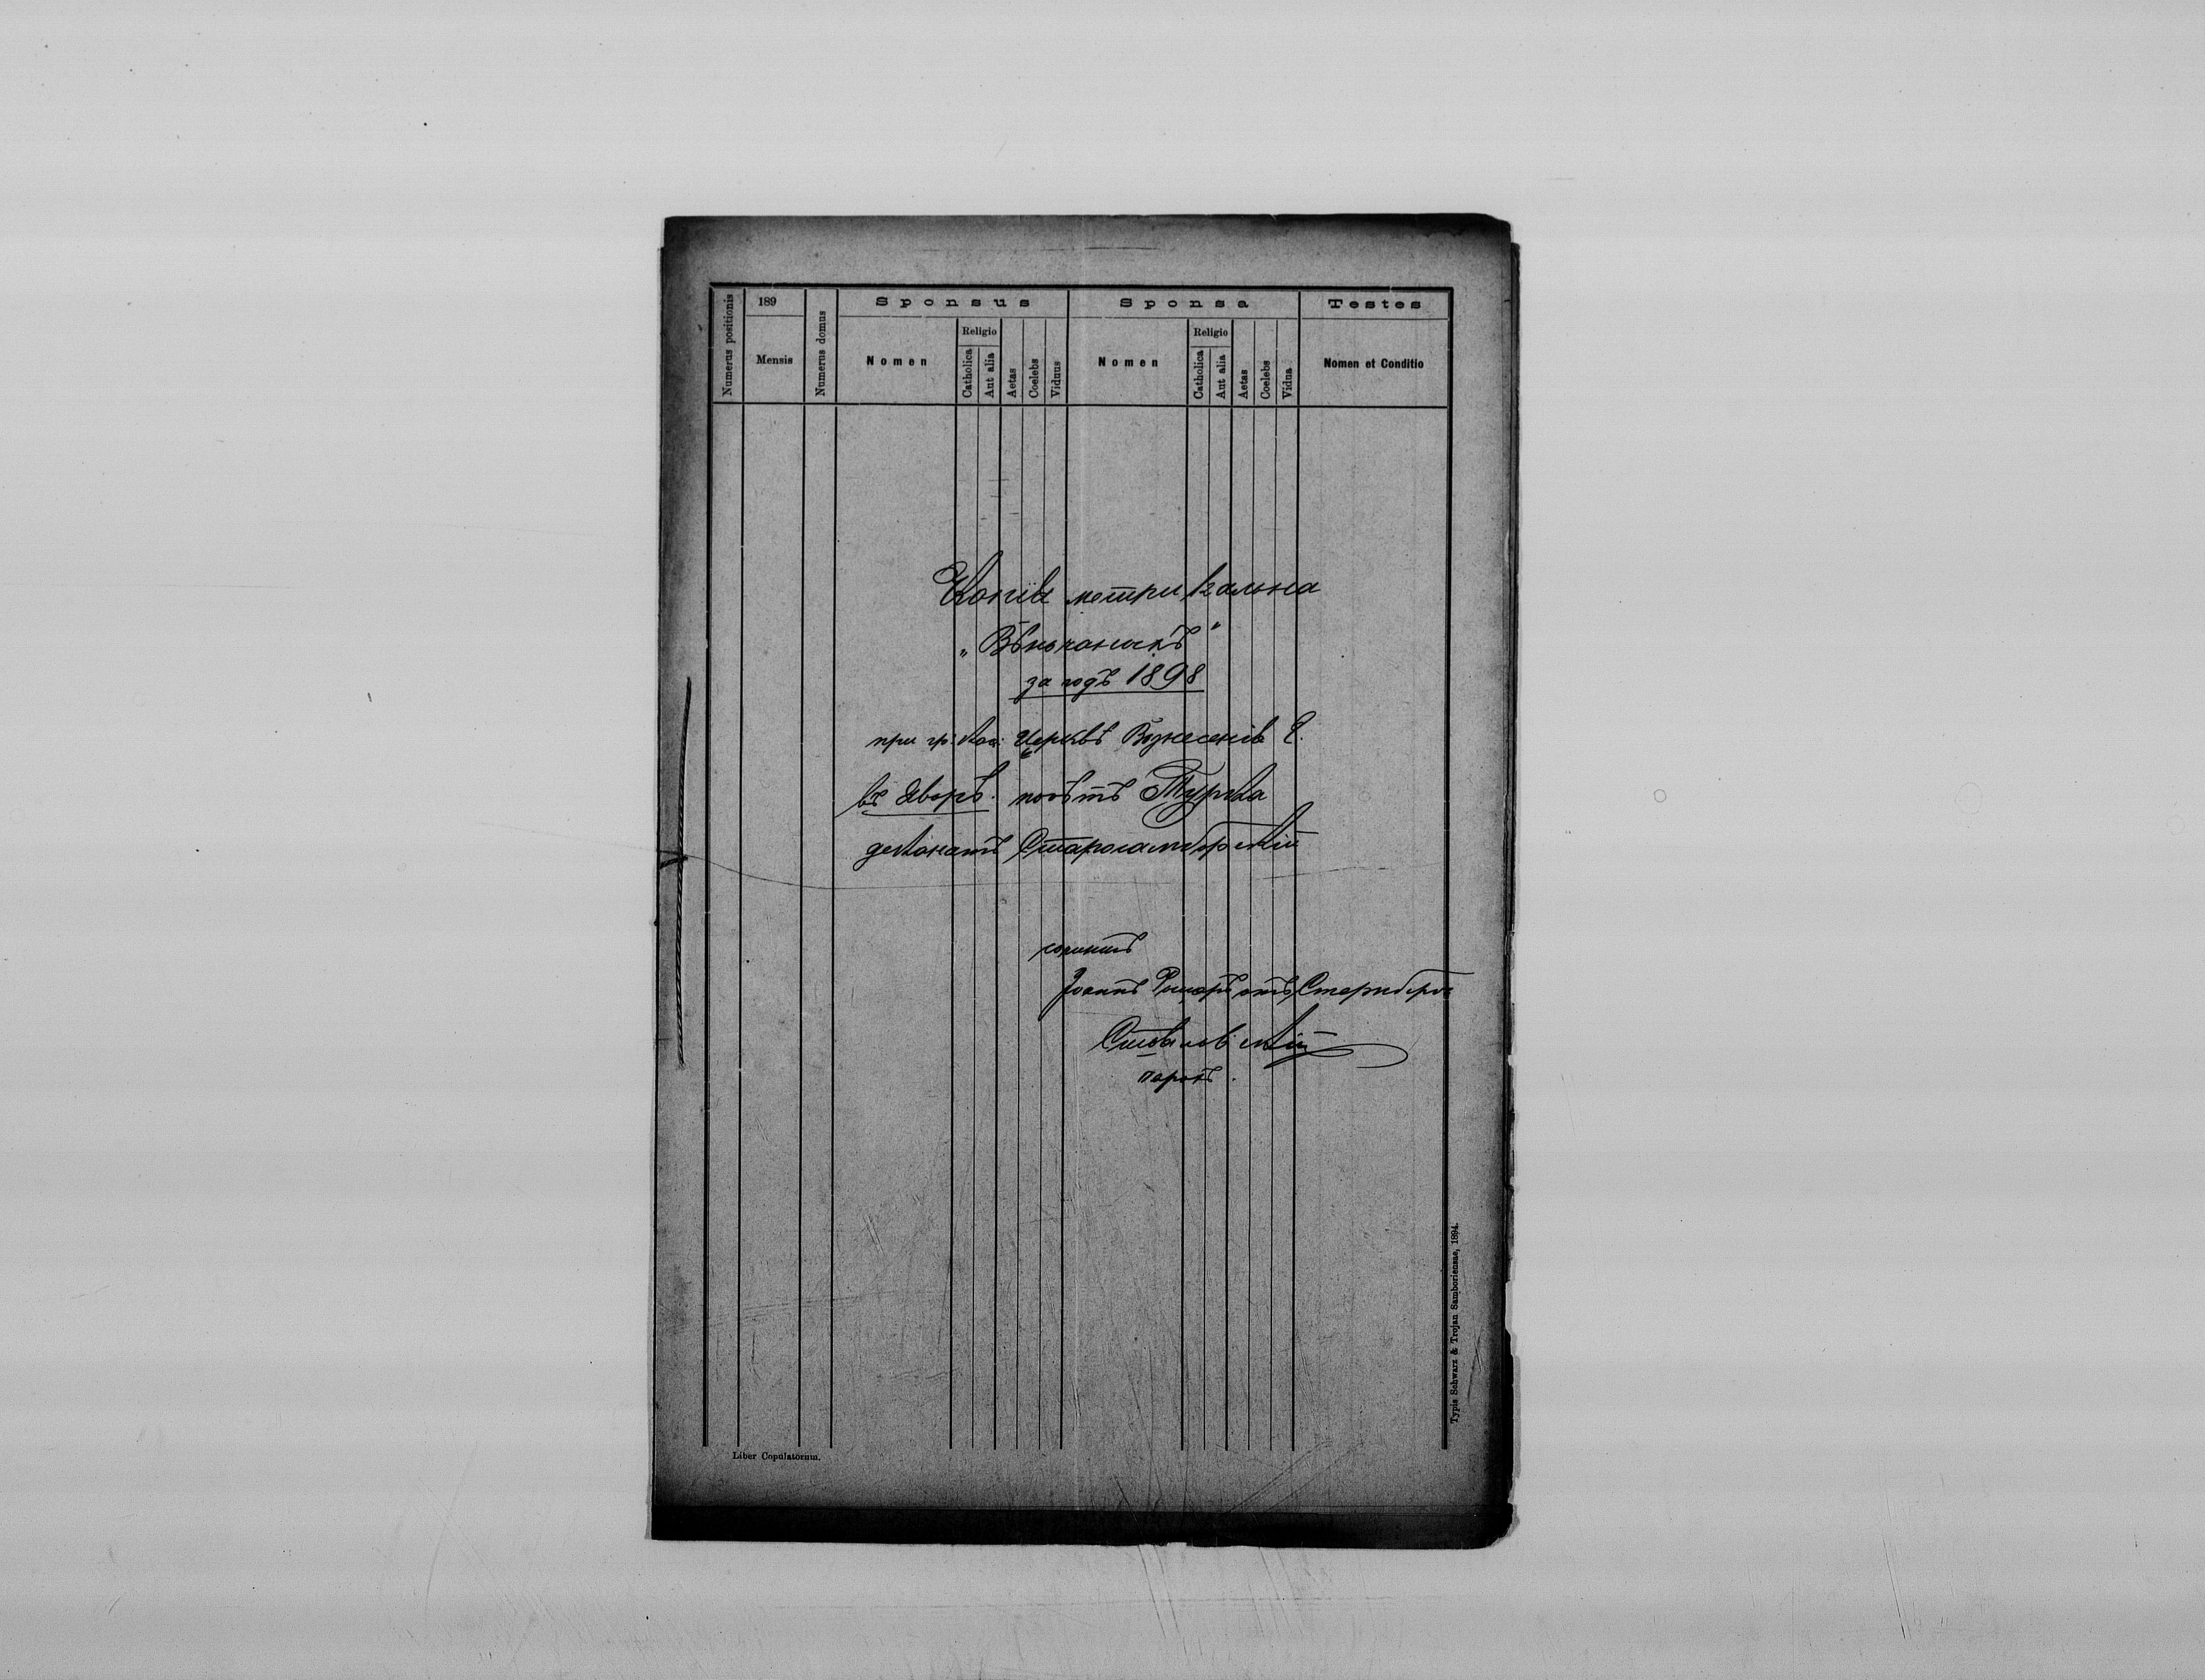 Numerus positionis
189
Mensis
Numerus domus
Sponsus
Nomen
Religio
Catholica
Aut alia
Aetas
Coelebs
Viduus
Sponsa
Nomen
Religio
Catholica
Aut alia
Aetas
Coelebs
Vidua
Testes
Nomen et Conditio
Копія метрикальна
„Вѣнчаныхъ"
за годъ 1898
при гр. кат. Церквѣ Вознесенія Г.
въ Яворѣ. повѣтъ Турка
деканатъ Старосамборскій
Іоаннъ Рыцарь отъ Стернберг
парохъ.
Liber Copulatorum.
Typis Schwarz & Trojan Samboriensae, 1894.